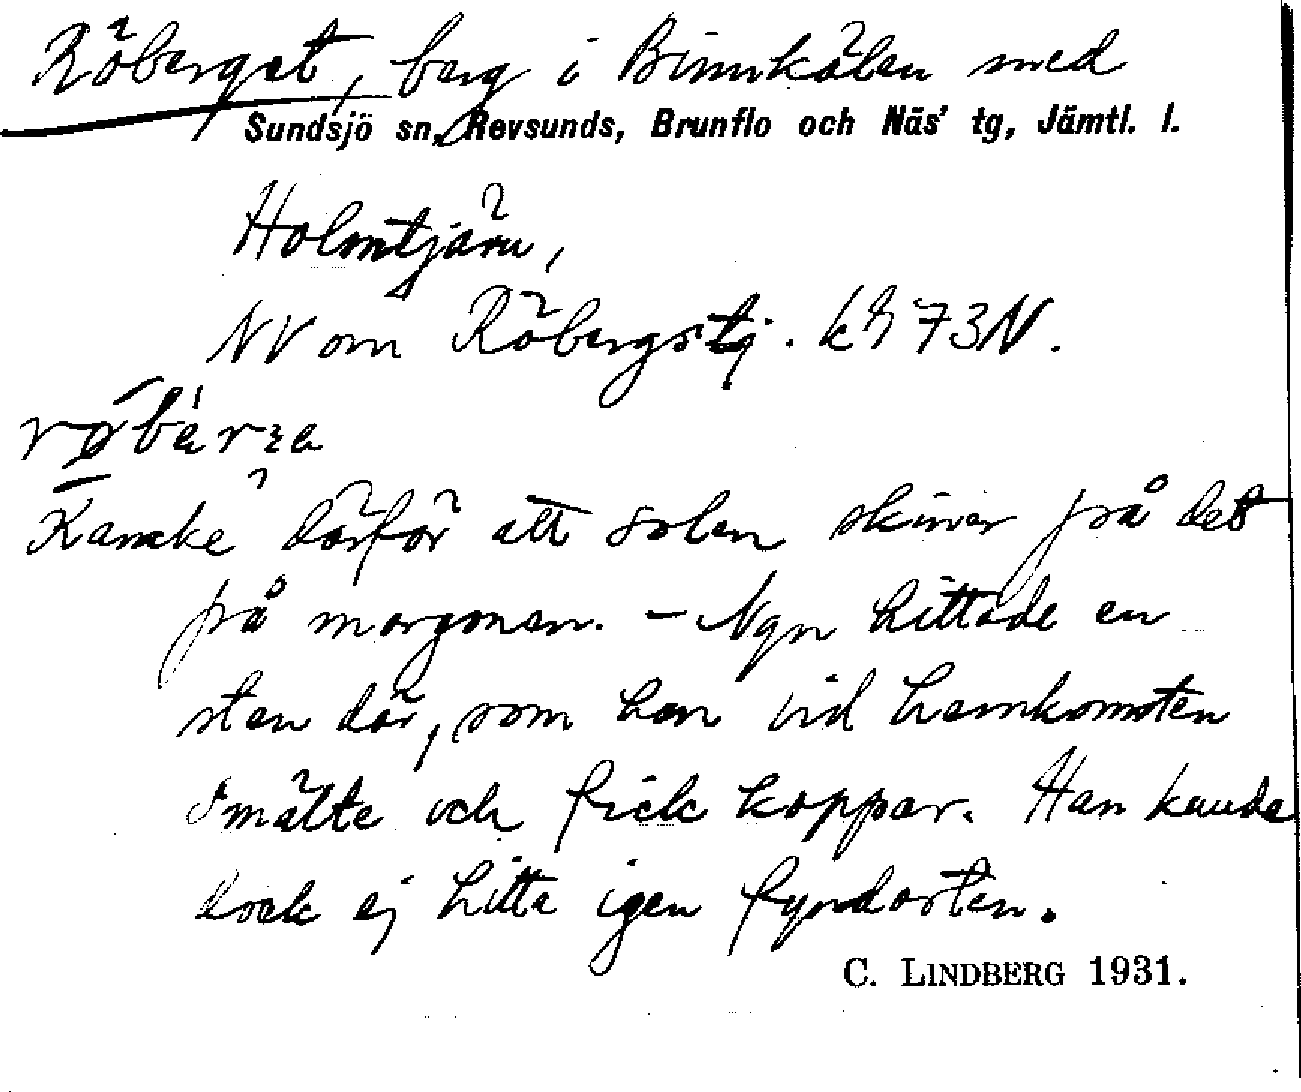 Röberget, berg i Binnkölen med
Sundsjö sn, Revsunds, Brunflo och Näs' tg, Jämtl. l.
Holmtjärn,
NV om Röbergstj. 73 N.
Kanske därför att solen skiner på det
på morgonen. – Ngn hittade en
sten där, som han vid hemkomsten
smälte och fick koppar. Han kunde
dock ej hitta igen fyndorten.
C. LINDBERG 1931.